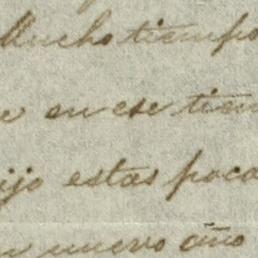 Mucho tiempo
en ese tiem
ijo estas poca
nuevo año